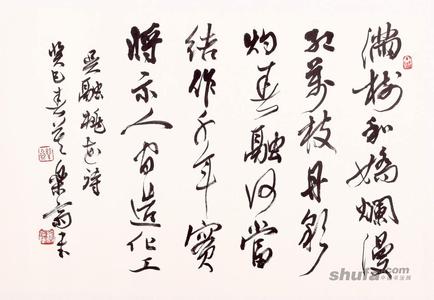 满树和娇烂漫
红万枝丹彩
灼春融何当
结作千年实
将示人间造化工
吴融桃花诗
癸巳春兰 
shufa.com